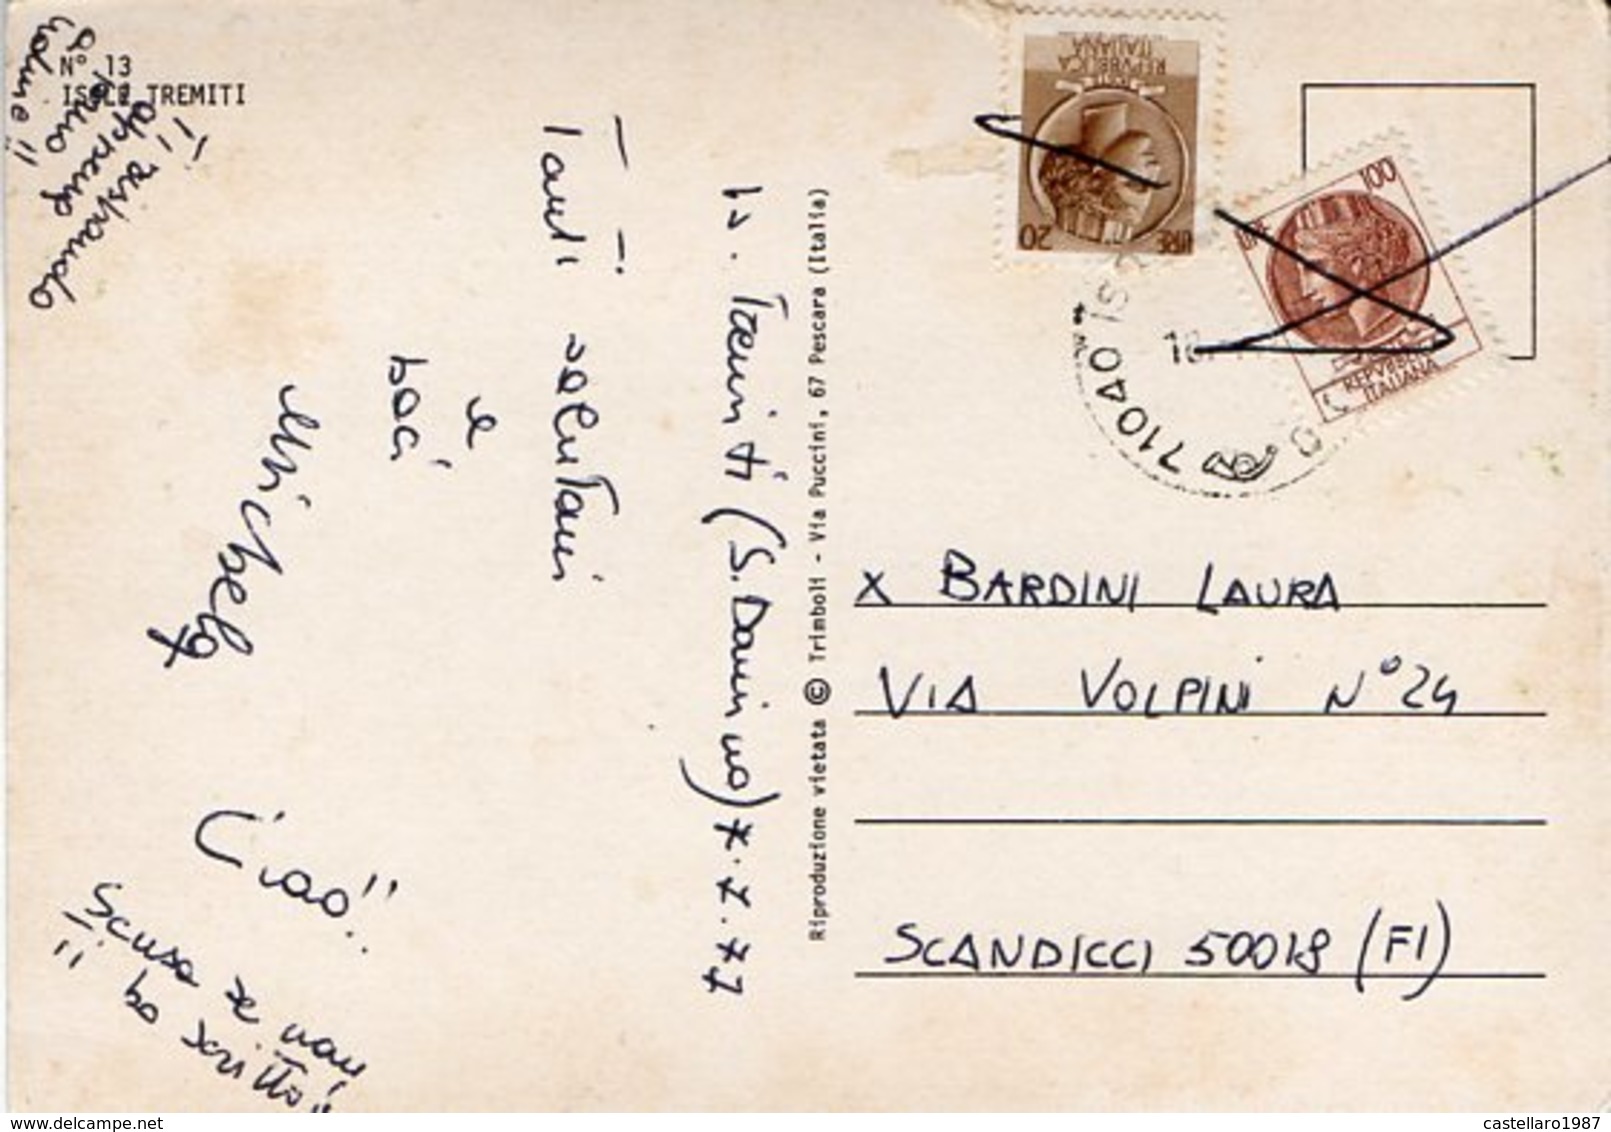 N° 13
ISOLE TREMITI
Is. Tremiti (S. Domino) 7.7.77
Tanti saluti
e
baci
Michela
Ciao!!
Scusa se non
ti ho scritto!!
Ti sto
appena
Riproduzione vietata © Trimboli - Via Puccini, 67 Pescara (Italia)
REPVBBLICA
ITALIANA
LIRE 20
LIRE 100
REPVBBLICA
ITALIANA
71040 IS
X BARDINI LAURA
VIA VOLPINI N° 24
SCANDICCI 50018 (FI)
castellaro1987